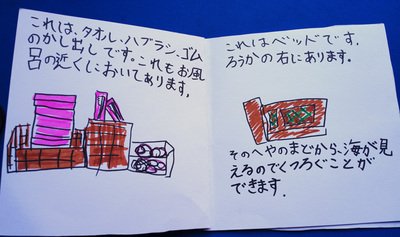 これは、タオル・ハブラシ、ゴム
のかし出しです。これもお風
呂の近くにおいてあります。
これはベッドです。
ろうかの右にあります。
そのへやのまどから、海が見
えるのでくつろぐことが
できます。